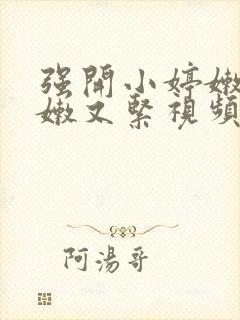 强開小婷嫩
嫩又緊視頻
阿湯哥